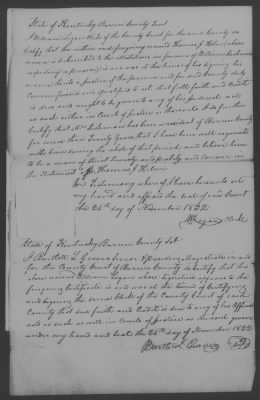 State of Kentucky Barren County Sct
I William Logan Clerk of the County Court for the said County do
certify that the within and foregoing named Thomas J. Helm whose
name is subscribed to the
a pension is and was at the time of his signing his
name thereto a Justice of the peace in and for said County duly
Commissioned and qualified to act that full faith and Credit
is due and ought to be given to any of his official acts
as such either in Courts of Justice or thereout I do further
certify that Mr has been a resident of Barren County
for more than twenty years that I have been well acquainted
with him during the whole of that period and believe him
to be a man of strict and probity and concur in
the Statement of Thomas J. Helm
In Testimony whereof I have hereunto set
my hand and affixed the seal of said Court
the 26th day of November 1832
Wm Logan Clerk
State of Kentucky Barren County Sct
I Bartlett Graves Senior & presiding Magistrate in and
for the County Court of Barren County do Certify that the
above named William Logan whose Signature appears to the
foregoing Certificate is and was at the time of Certifying
and Signing the same Clerk of the County Court of said
County that due faith and Credit is due to any of his Official
acts as such as well in Courts of Justice as thereout given
under my hand and Seal the 26th day of November 1832
Bartlett Graves